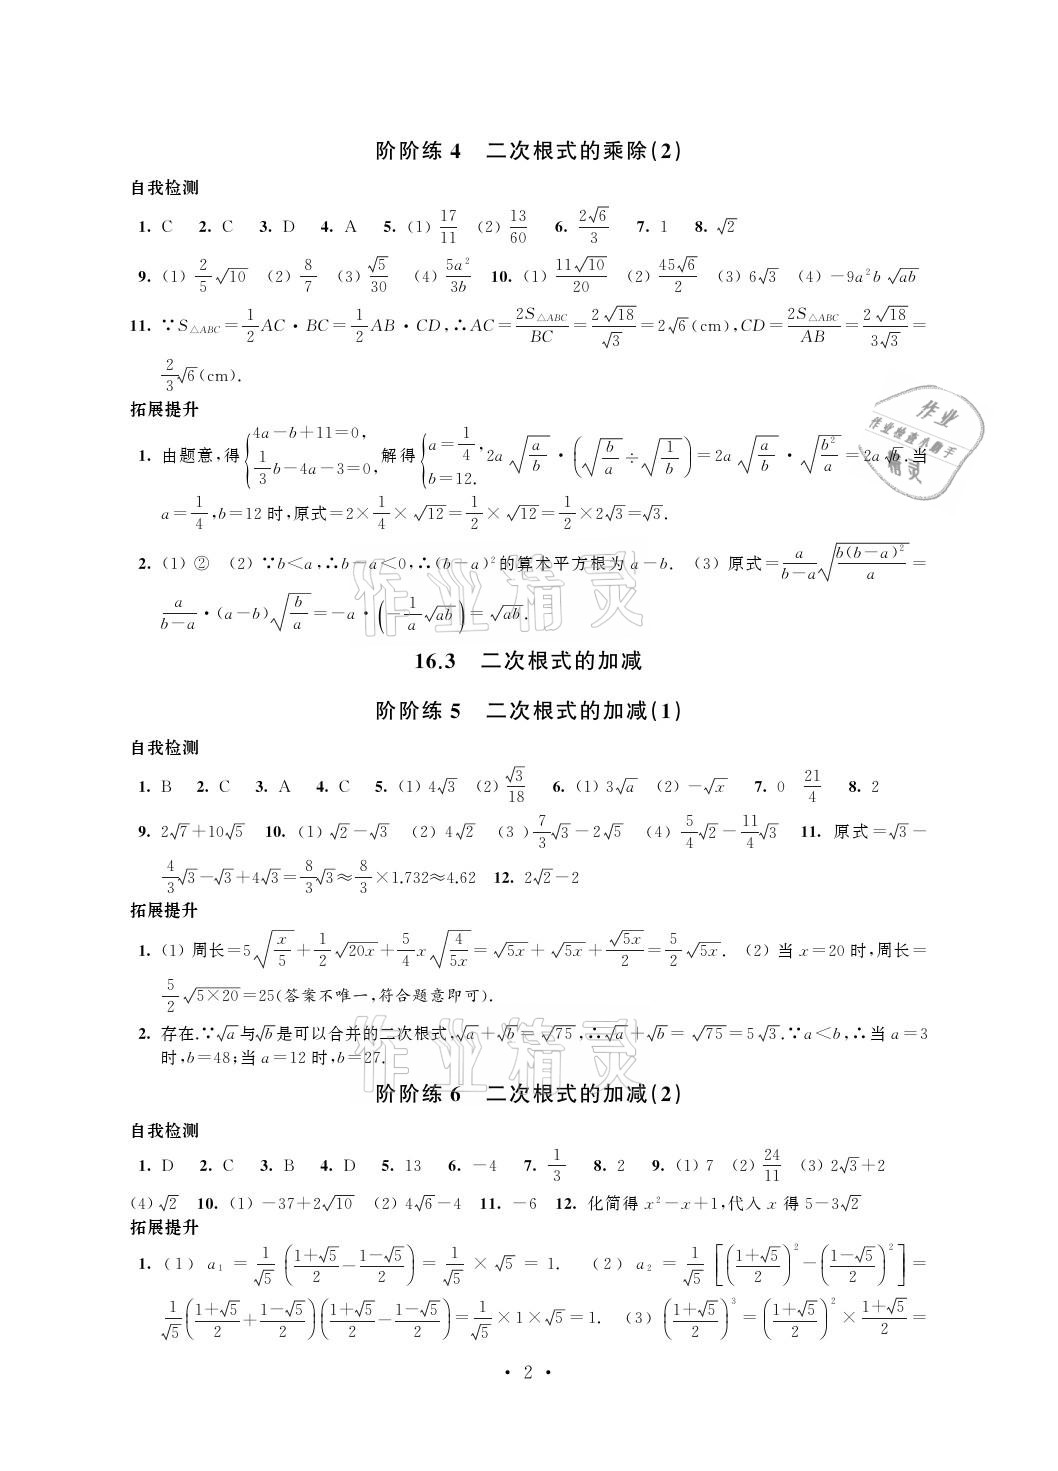 阶阶练 4 二次根式的乘除(2)
自我检测
1. C 2. C 3. D 4. A 5. (1) 17/11 (2) 13/60 6. 2√6/3 7. 1 8. √2
9. (1) 2/5 √10 (2) 8/7 (3) √5/30 (4) 5a²/3b 10. (1) 11√10/20 (2) 45√6/2 (3) 6√3 (4) −9a²b√ab
11. ∵S△ABC=1/2 AC·BC=1/2 AB·CD,∴AC=2S△ABC/BC=2√18/√3=2√6(cm),CD=2S△ABC/AB=2√18/3√3=
2/3 √6(cm).
拓展提升
1. 由题意,得{4a−b+11=0, 1/3 b−4a−3=0, 解得{a=1/4, b=12. 2a√(a/b)·(√(b/a)÷√(1/b))=2a√(a/b)·√(b²/a)=2a√b.当
a=1/4,b=12 时,原式=2×1/4×√12=1/2×√12=1/2×2√3=√3.
2. (1) ② (2) ∵b<a,∴b−a<0,∴(b−a)²的算术平方根为 a−b. (3) 原式=a/(b−a) √(b(b−a)²/a)=
a/(b−a)·(a−b)√(b/a)=−a·(−1/a √ab)=√ab.
16.3 二次根式的加减
阶阶练 5 二次根式的加减(1)
自我检测
1. B 2. C 3. A 4. C 5. (1) 4√3 (2) √3/18 6. (1) 3√a (2) −√x 7. 0 21/4 8. 2
9. 2√7+10√5 10. (1) √2−√3 (2) 4√2 (3) 7/3 √3−2√5 (4) 5/4 √2−11/4 √3 11. 原式=√3−
4/3 √3−√3+4√3=8/3 √3≈8/3×1.732≈4.62 12. 2√2−2
拓展提升
1. (1) 周长=5√(x/5)+1/2 √20x+5/4 x√(4/5x)=√5x+√5x+√5x/2=5/2 √5x. (2) 当 x=20 时,周长=
5/2 √5×20=25(答案不唯一,符合题意即可).
2. 存在.∵√a与√b是可以合并的二次根式,√a+√b=√75,∴√a+√b=√75=5√3.∵a<b,∴当 a=3
时,b=48;当 a=12 时,b=27.
阶阶练 6 二次根式的加减(2)
自我检测
1. D 2. C 3. B 4. D 5. 13 6. −4 7. 1/3 8. 2 9. (1) 7 (2) 24/11 (3) 2√3+2
(4) √2 10. (1) −37+2√10 (2) 4√6−4 11. −6 12. 化简得 x²−x+1,代入 x 得 5−3√2
拓展提升
1. (1) a₁=1/√5 ((1+√5)/2−(1−√5)/2)=1/√5×√5=1. (2) a₂=1/√5 [((1+√5)/2)²−((1−√5)/2)²]=
1/√5 ((1+√5)/2+(1−√5)/2)((1+√5)/2−(1−√5)/2)=1/√5×1×√5=1. (3) ((1+√5)/2)³=((1+√5)/2)²×(1+√5)/2=
· 2 ·
作业精灵
作业精灵
作业
作业检查小助手
精灵